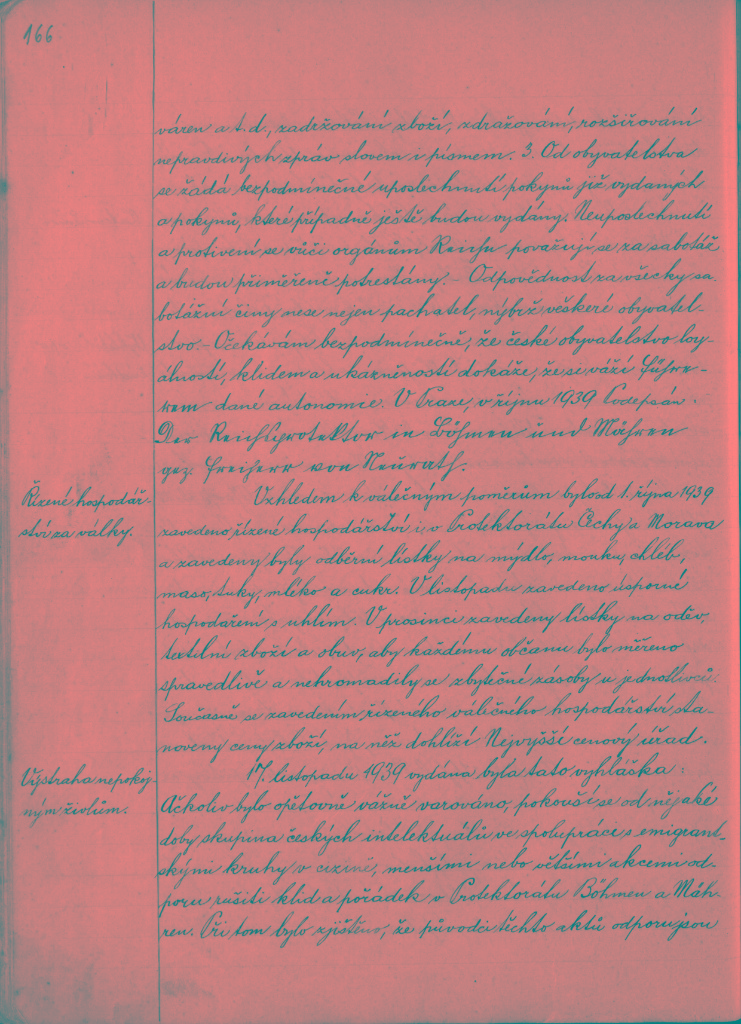 166
váren a t.d., zadržování zboží, zdražování, rozšiřování
nepravdivých zpráv slovem i písmem. 3. Od obyvatelstva
se žádá bezpodmínečné uposlechnutí pokynů již vydaných
a pokynů, které případně ještě budou vydány. Neuposlechnutí
a protivení se vůči orgánům Reichu považují se za sabotáž
a budou přiměřeně potrestány. – Odpovědnost za všecky sa-
botážní činy nese nejen pachatel, nýbrž veškeré obyvatel-
stvo. – Očekávám bezpodmínečně, že české obyvatelstvo loy-
álností, klidem a ukázněností dokáže, že si váží Führe-
rem dané autonomie. V Praze, v říjnu 1939 Podepsán.
Der Reichsprotektor in Böhmen und Mähren
gez. Freiherr von Neurath.
Řízené hospodář-
ství za války.
Vzhledem k válečným poměrům bylo od 1. října 1939
zavedeno řízené hospodářství i v Protektorátu Čechy a Morava
a zavedeny byly odběrní lístky na mýdlo, mouku, chléb,
maso, tuky, mléko a cukr. V listopadu zavedeno úsporné
hospodaření s uhlím. V prosinci zavedeny lístky na oděv,
textilní zboží a obuv, aby každému občanu bylo měřeno
spravedlivě a nehromadily se zbytečné zásoby u jednotlivců.
Současně se zavedením řízeného válečného hospodářství sta-
noveny ceny zboží, na něž dohlíží Nejvyšší cenový úřad.
Výstraha nepokoj-
ným živlům.
17. listopadu 1939 vydána byla tato vyhláška:
Ačkoliv bylo opětovně vážně varováno, pokouší se od nějaké
doby skupina českých intelektuálů ve spolupráci s emigrant-
skými kruhy v cizině, menšími nebo většími akcemi od-
poru rušiti klid a pořádek v Protektorátu Böhmen a Mäh-
ren. Při tom bylo zjištěno, že původci těchto aktů odporu jsou